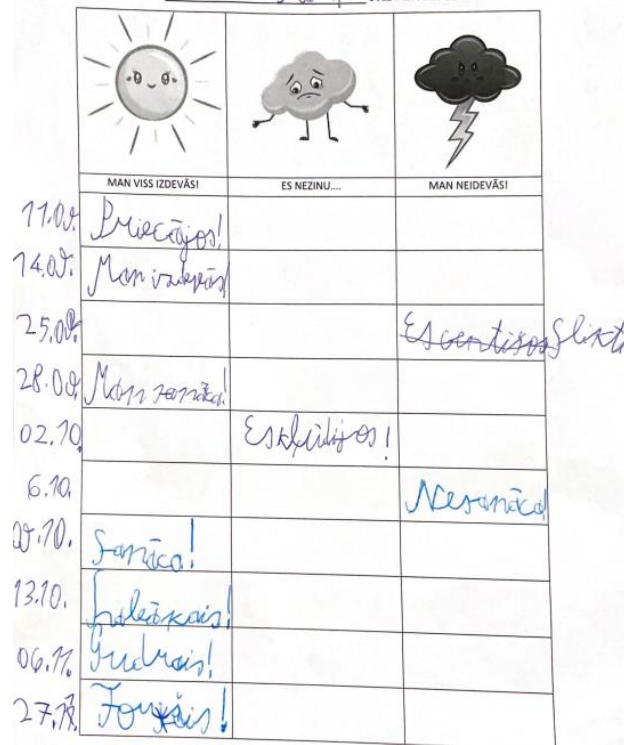 MAN VISS IZDEVĀS! ES NEZINU.... MAN NEIDEVĀS!
11.09. Priecājos!
14.09. Man izdevās
25.09. Es centisos Slikti
28.09. Man sanāca!
02.10. Es kļūdijos!
6.10. Nesanāca
09.10. Sanāca!
13.10. Labākais!
06.11. Gudrais!
27.11.